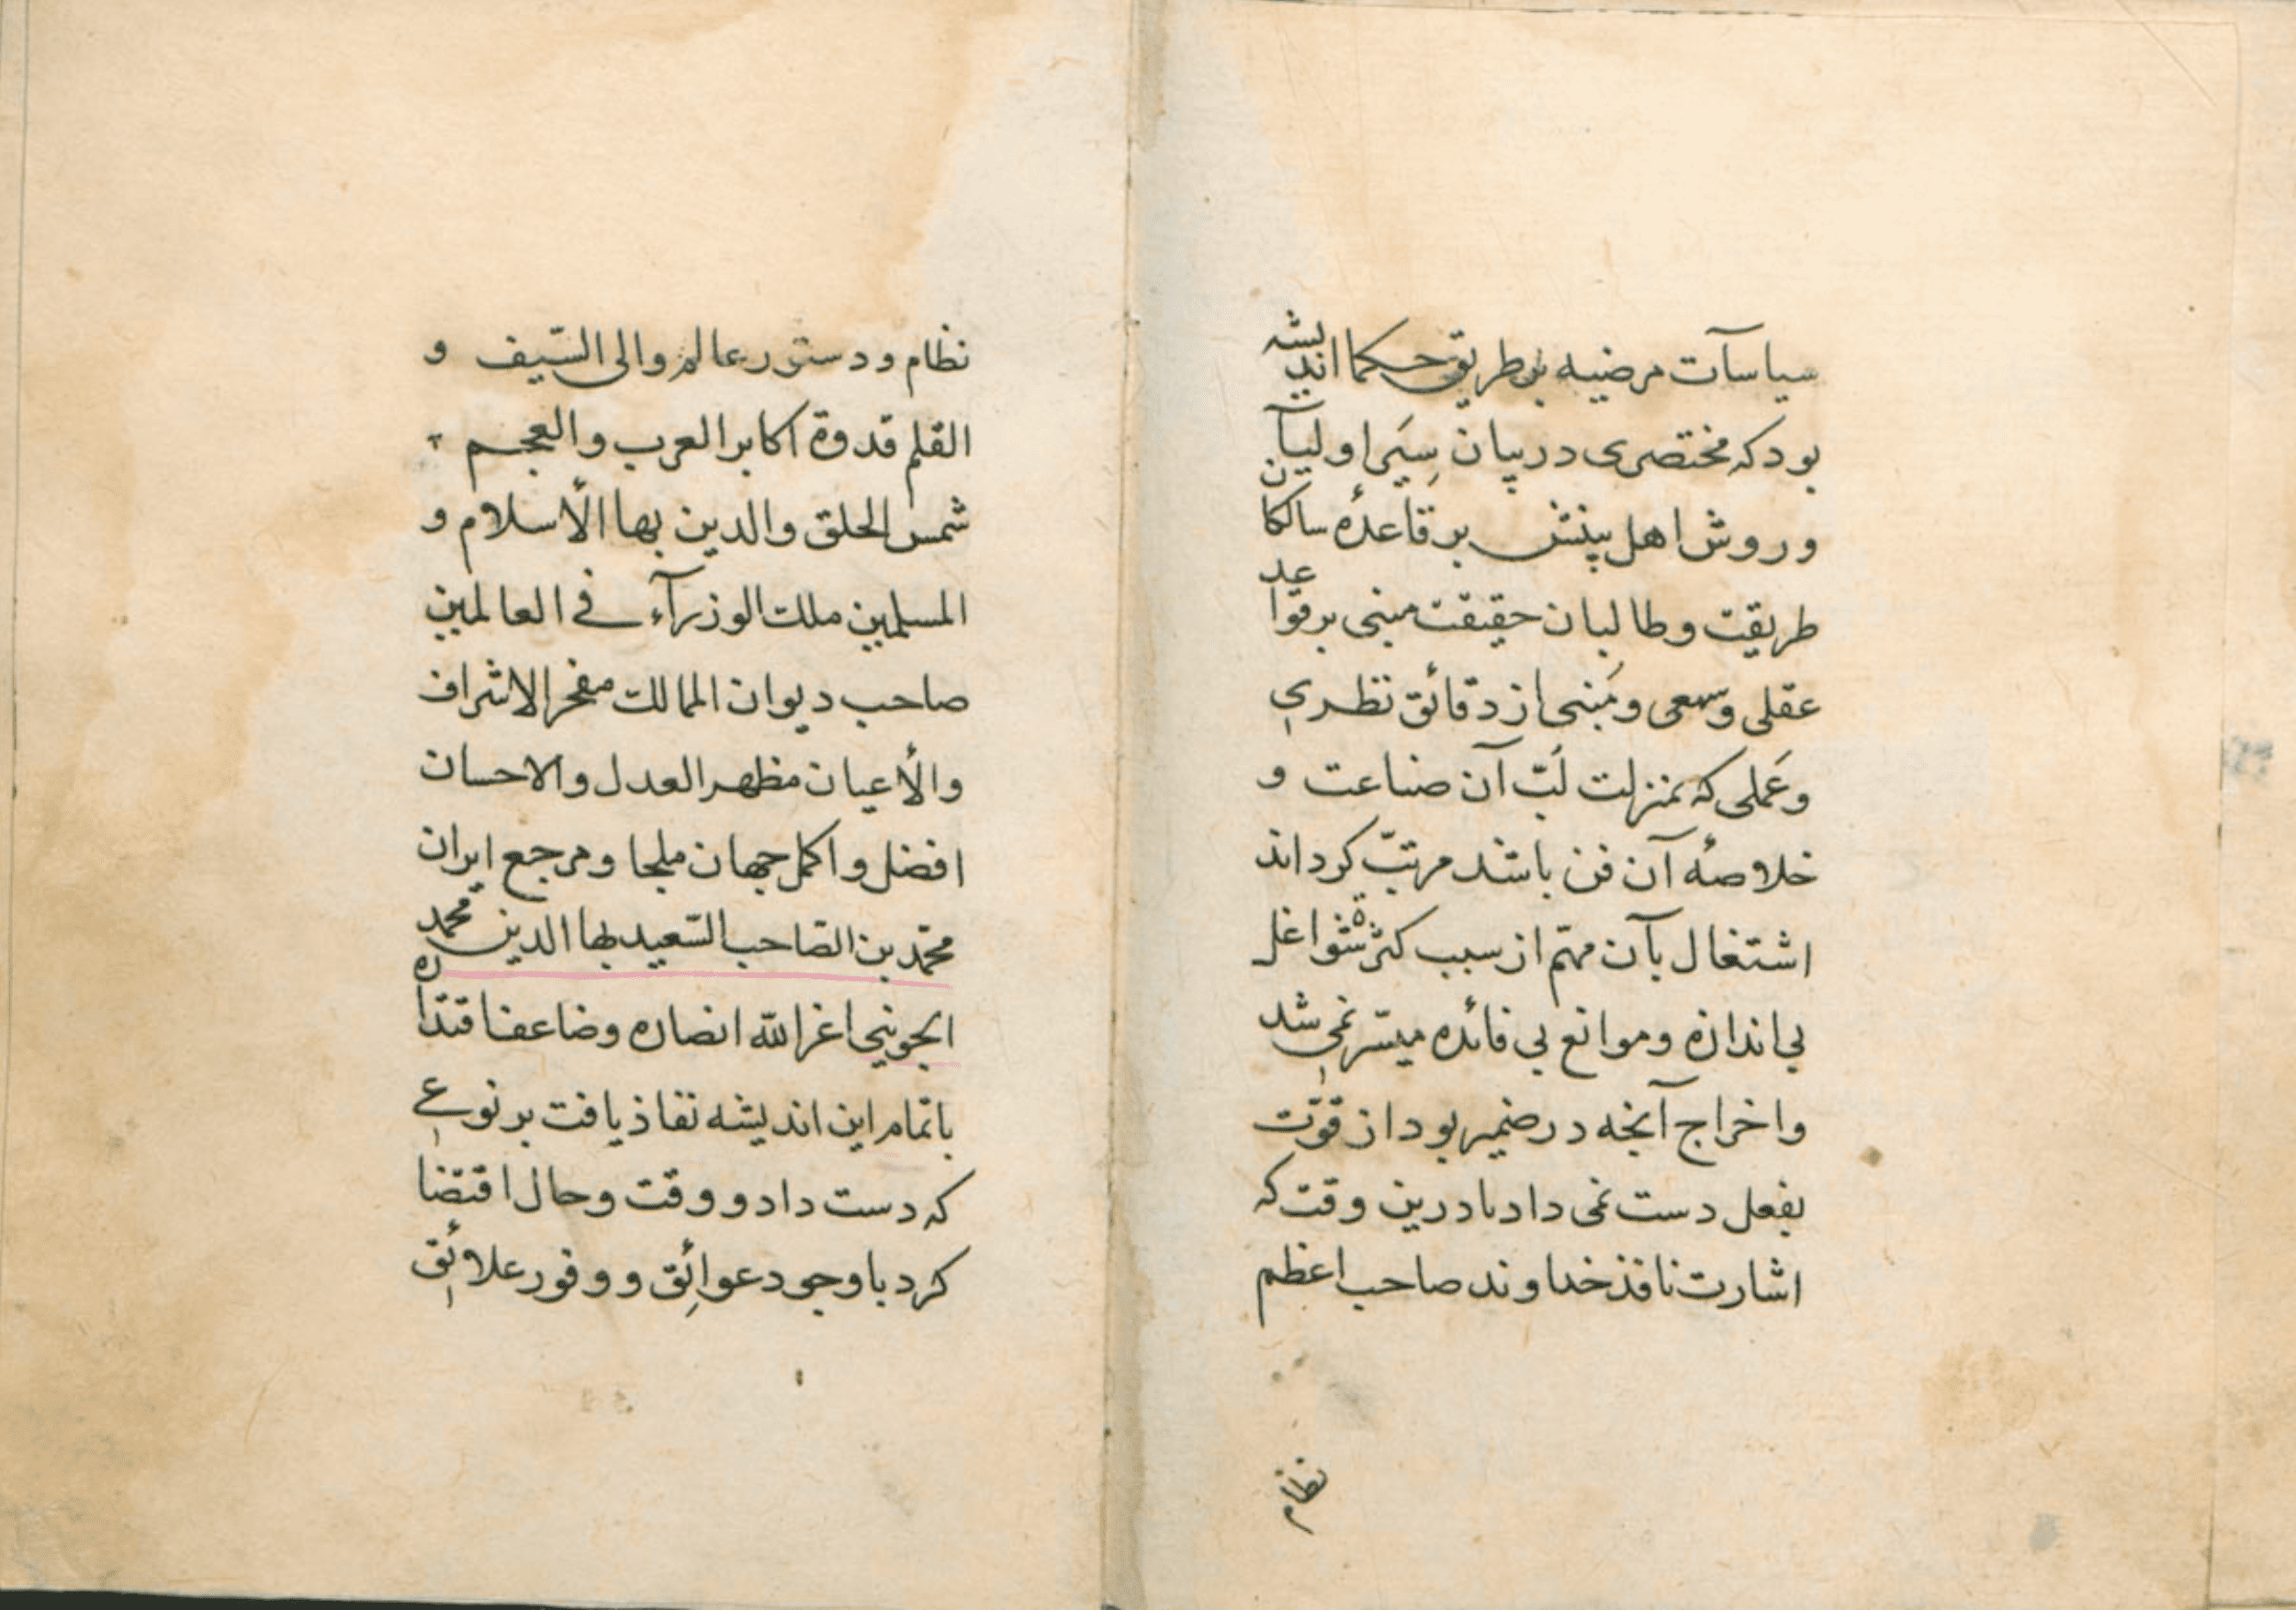 سیاسآت مرضیه بر طریق حکما اندیشه
بود که مختصری در بیان سِیَر اولیآ
و روش اهل بینش بر قاعدهٔ سالکان
طریقت و طالبان حقیقت مبنی بر قواعد
عقلی و سمعی و مَبنی از دقائق نظری
و عَملی که بمنزلت لُبّ آن صناعت و
خلاصهٔ آن فن باشد مرتبّ کرداند
اشتغال بآن مهّم از سبب کثرة شواغل
بی اندازه و موانع بی فائده میسّر نمی شد
و اخراج آنچه در ضمیر بود از قوّت
بفعل دست نمی داد تا درین وقت که
اشارت نافذ خداوند صاحب اعظم
نظام
نظام و دستور عالم والی السّیف و
القلم قدوة اکابر العرب والعجم
شمس الحلق والدین بها الأسلام و
المسلمین ملک الوزرآء فی العالمین
صاحب دیوان الممالک مفخر الاشراف
والأعیان مظهر العدل والاحسان
افضل و اکمل جهان ملجا و مرجع ایران
محمّد بن الصّاحب السّعید بها الدین محمد
الجوینی اغر الله انصاره و ضاعف اقتداره
باتمام این اندیشه نفاذ یافت بر نوعی
که دست داد و وقت و حال اقتضا
کرد با وجود عوائِق و وفور علائِق